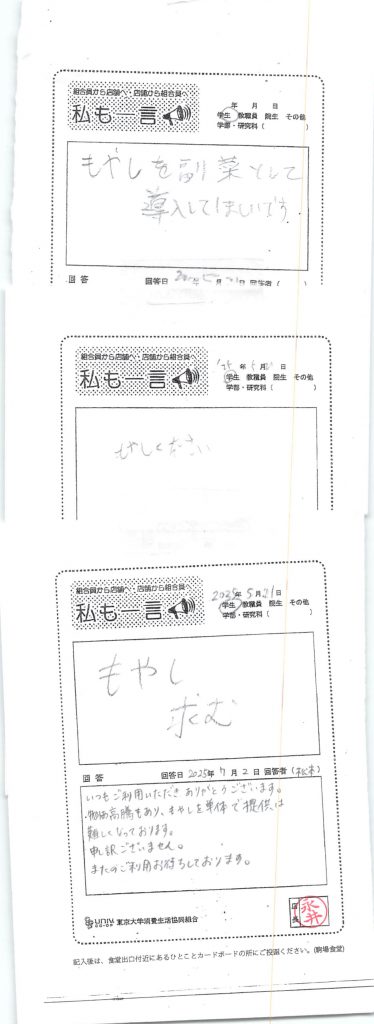 組合員から店舗へ・店舗から組合員へ
私も一言
年 月 日
学生 教職員 院生 その他
学部・研究科( )
もやしを副菜として
導入してほしいです
回答 回答日 年 月 日 回答者( )
組合員から店舗へ・店舗から組合員へ
私も一言
年 月 日
学生 教職員 院生 その他
学部・研究科( )
もやしください
組合員から店舗へ・店舗から組合員へ
私も一言
2025年5月21日
学生 教職員 院生 その他
学部・研究科( )
もやし
求む
回答 回答日 2025年7月2日 回答者(松本)
いつもご利用いただきありがとうございます。
物価高騰もあり、もやしを単体で提供は
難しくなっております。
申し訳ございません。
またのご利用お待ちしております。
univ. CO-OP 東京大学消費生活協同組合
店長 永井
記入後は、食堂出口付近にあるひとことカードボードの所にご投函ください。(駒場食堂)